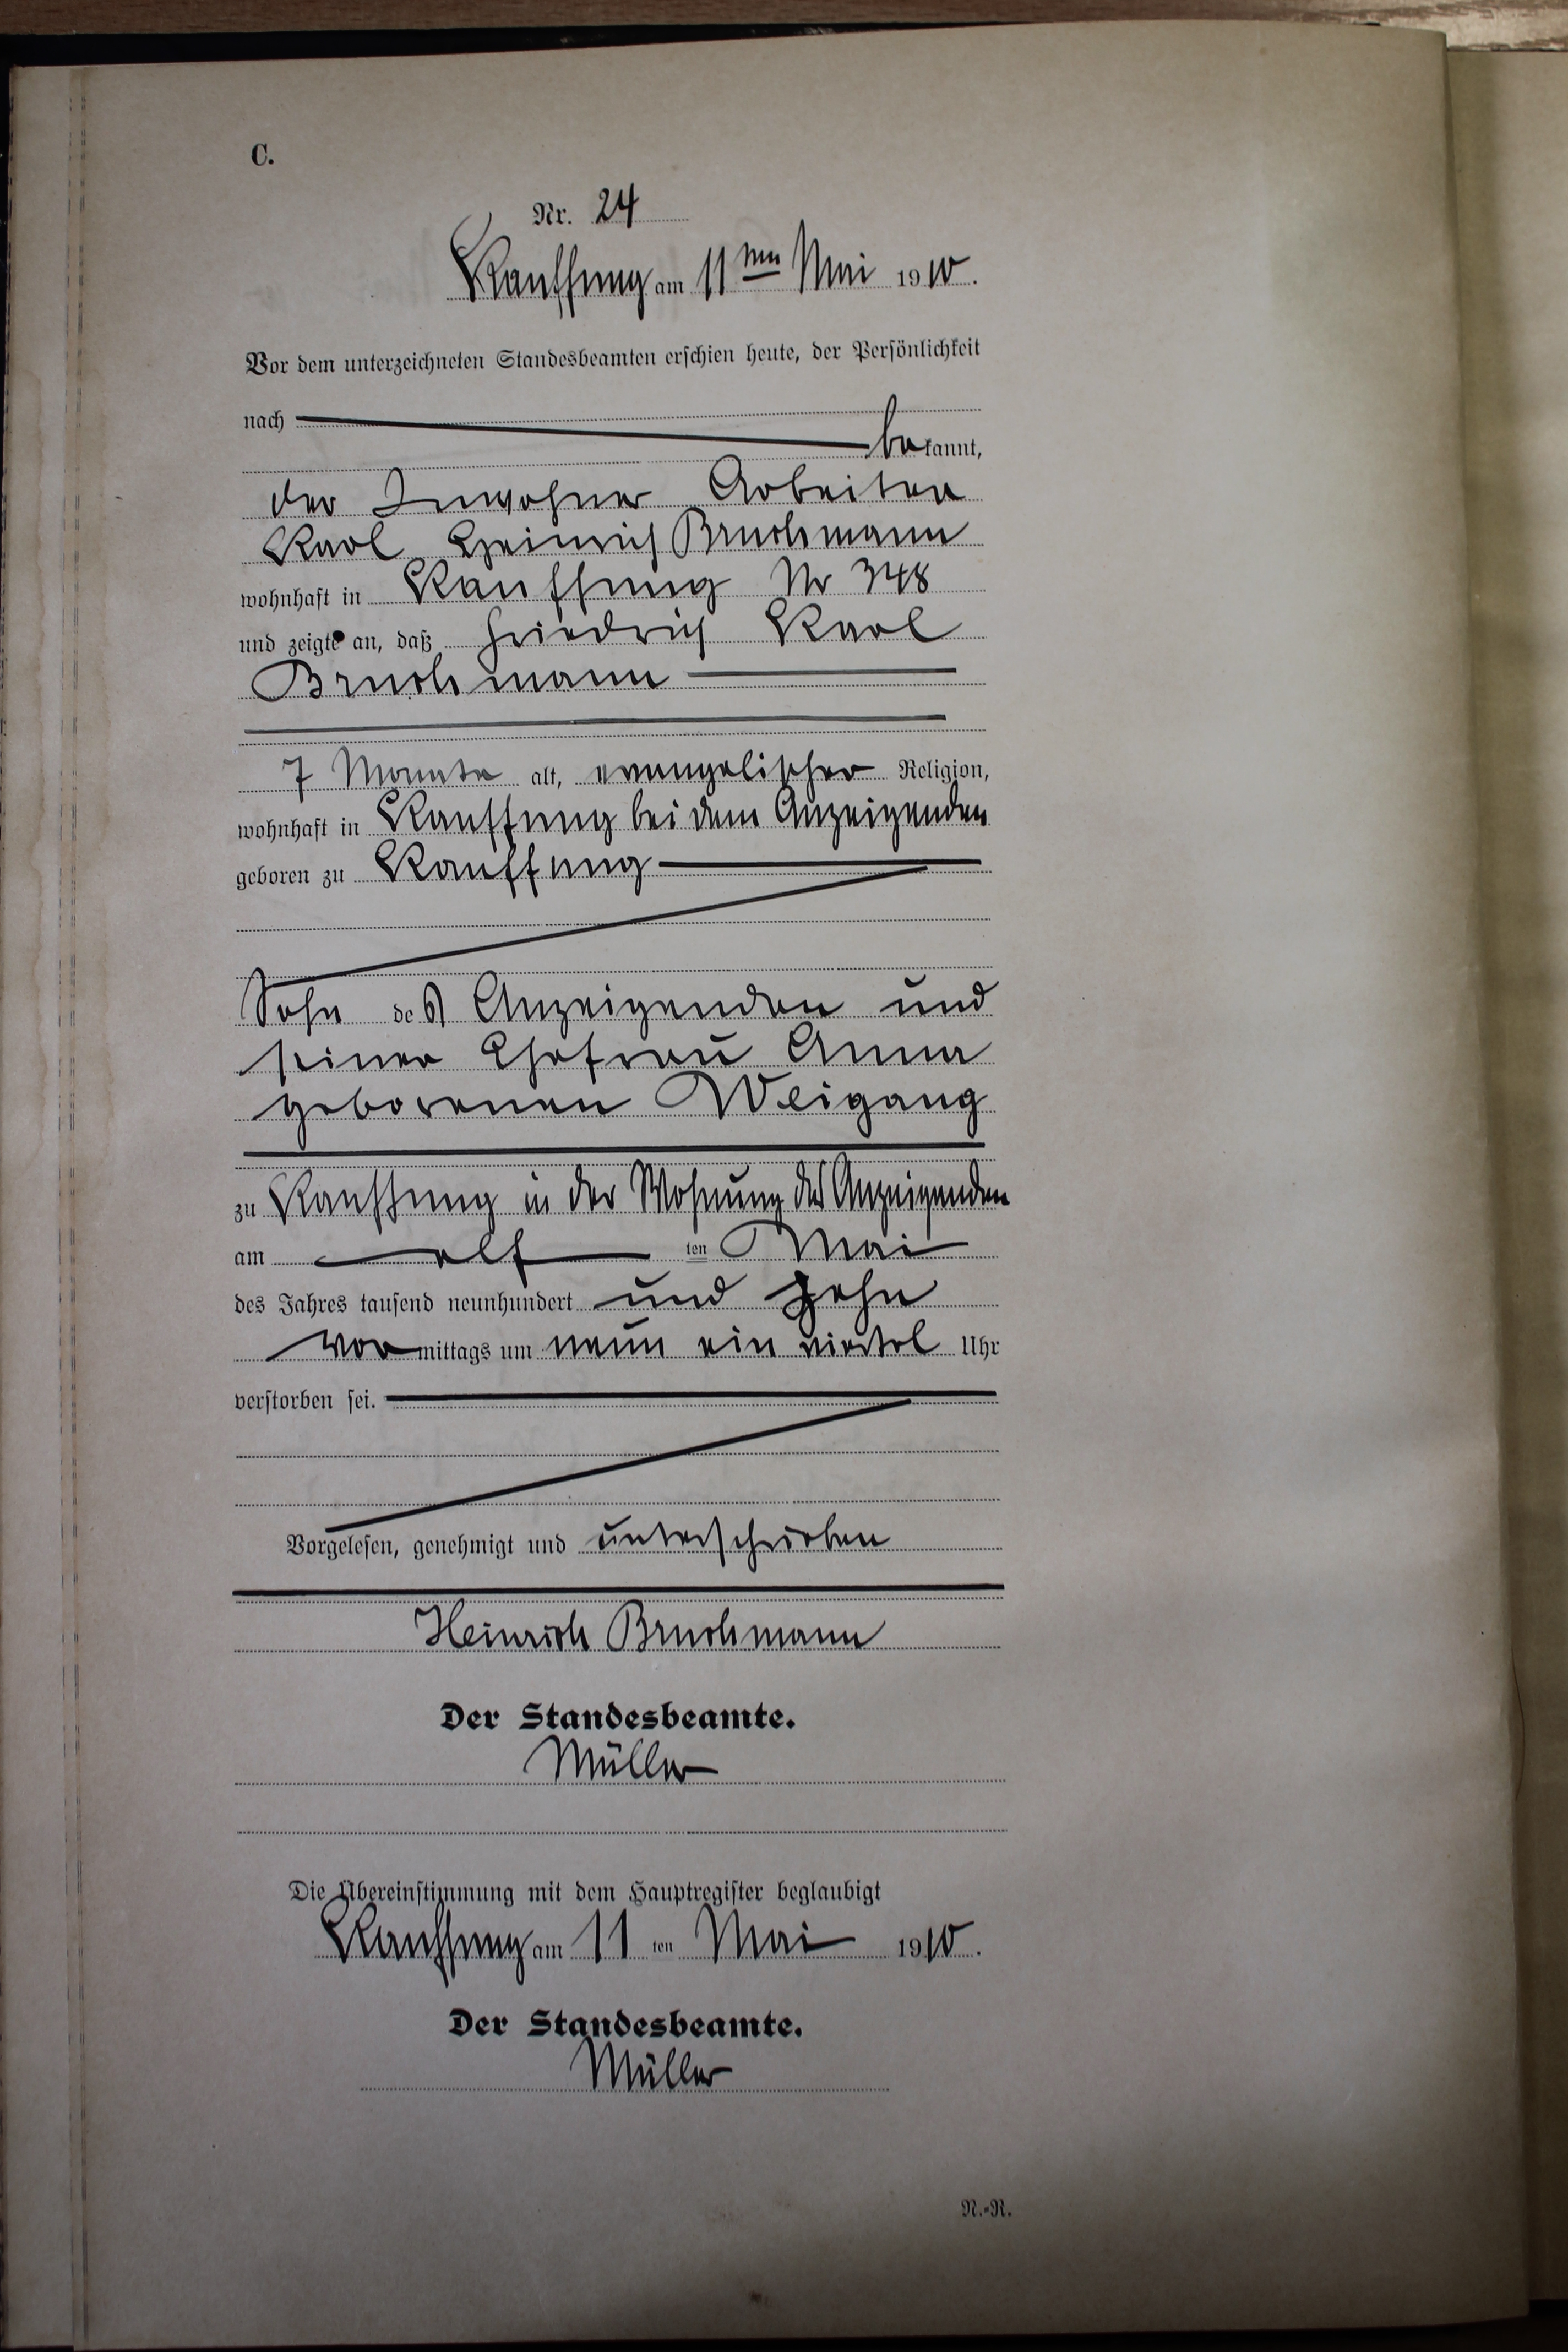 C.
Nr. 24
Kauffung am 11ten Mai 1910.
Vor dem unterzeichneten Standesbeamten erschien heute, der Persönlichkeit
nach
bekannt,
der Inwohner Arbeiter
Karl Heinrich Bruchmann
wohnhaft in Kauffung Nr 348
und zeigte an, daß Friedrich Karl
Bruchmann
7 Monate alt, evangelischer Religion,
wohnhaft in Kauffung bei dem Anzeigenden
geboren zu Kauffung
Sohn des Anzeigenden und
seiner Ehefrau Anna
geborenen Weigang
zu Kauffung in der Wohnung des Anzeigenden
am elf ten Mai
des Jahres tausend neunhundert und zehn
vormittags um neun ein viertel Uhr
verstorben sei.
Vorgelesen, genehmigt und unterschrieben
Heinrich Bruchmann
Der Standesbeamte.
Müller
Die Übereinstimmung mit dem Hauptregister beglaubigt
Kauffung am 11 ten Mai 1910.
Der Standesbeamte.
Müller
N.-R.